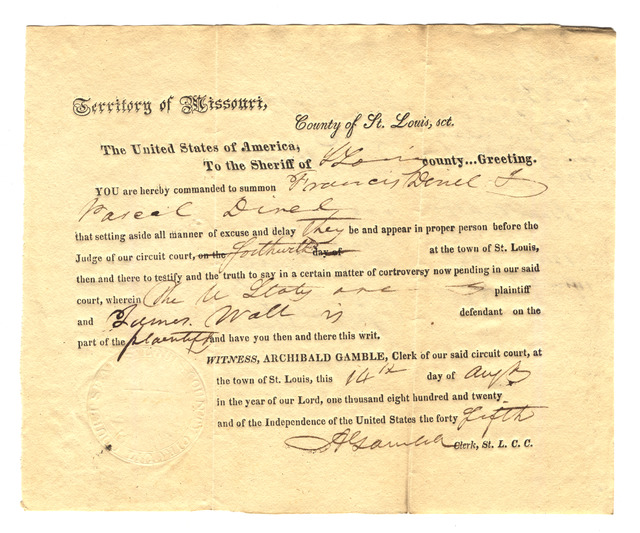 Territory of Missouri,
County of St. Louis, sct.
The United States of America,
To the Sheriff of St Louis county...Greeting.
YOU are hereby commanded to summon Francis Dinel &
Pascal Dinel
that setting aside all manner of excuse and delay they be and appear in proper person before the
Judge of our circuit court, on the forthwith day of at the town of St. Louis,
then and there to testify and the truth to say in a certain matter of controversy now pending in our said
court, wherein The U States are plaintiff
and James Wall is defendant on the
part of the plaintiff and have you then and there this writ.
WITNESS, ARCHIBALD GAMBLE, Clerk of our said circuit court, at
the town of St. Louis, this 14th day of Augt
in the year of our Lord, one thousand eight hundred and twenty
and of the Independence of the United States the forty fifth
A Gamble Clerk, St. L. C. C.